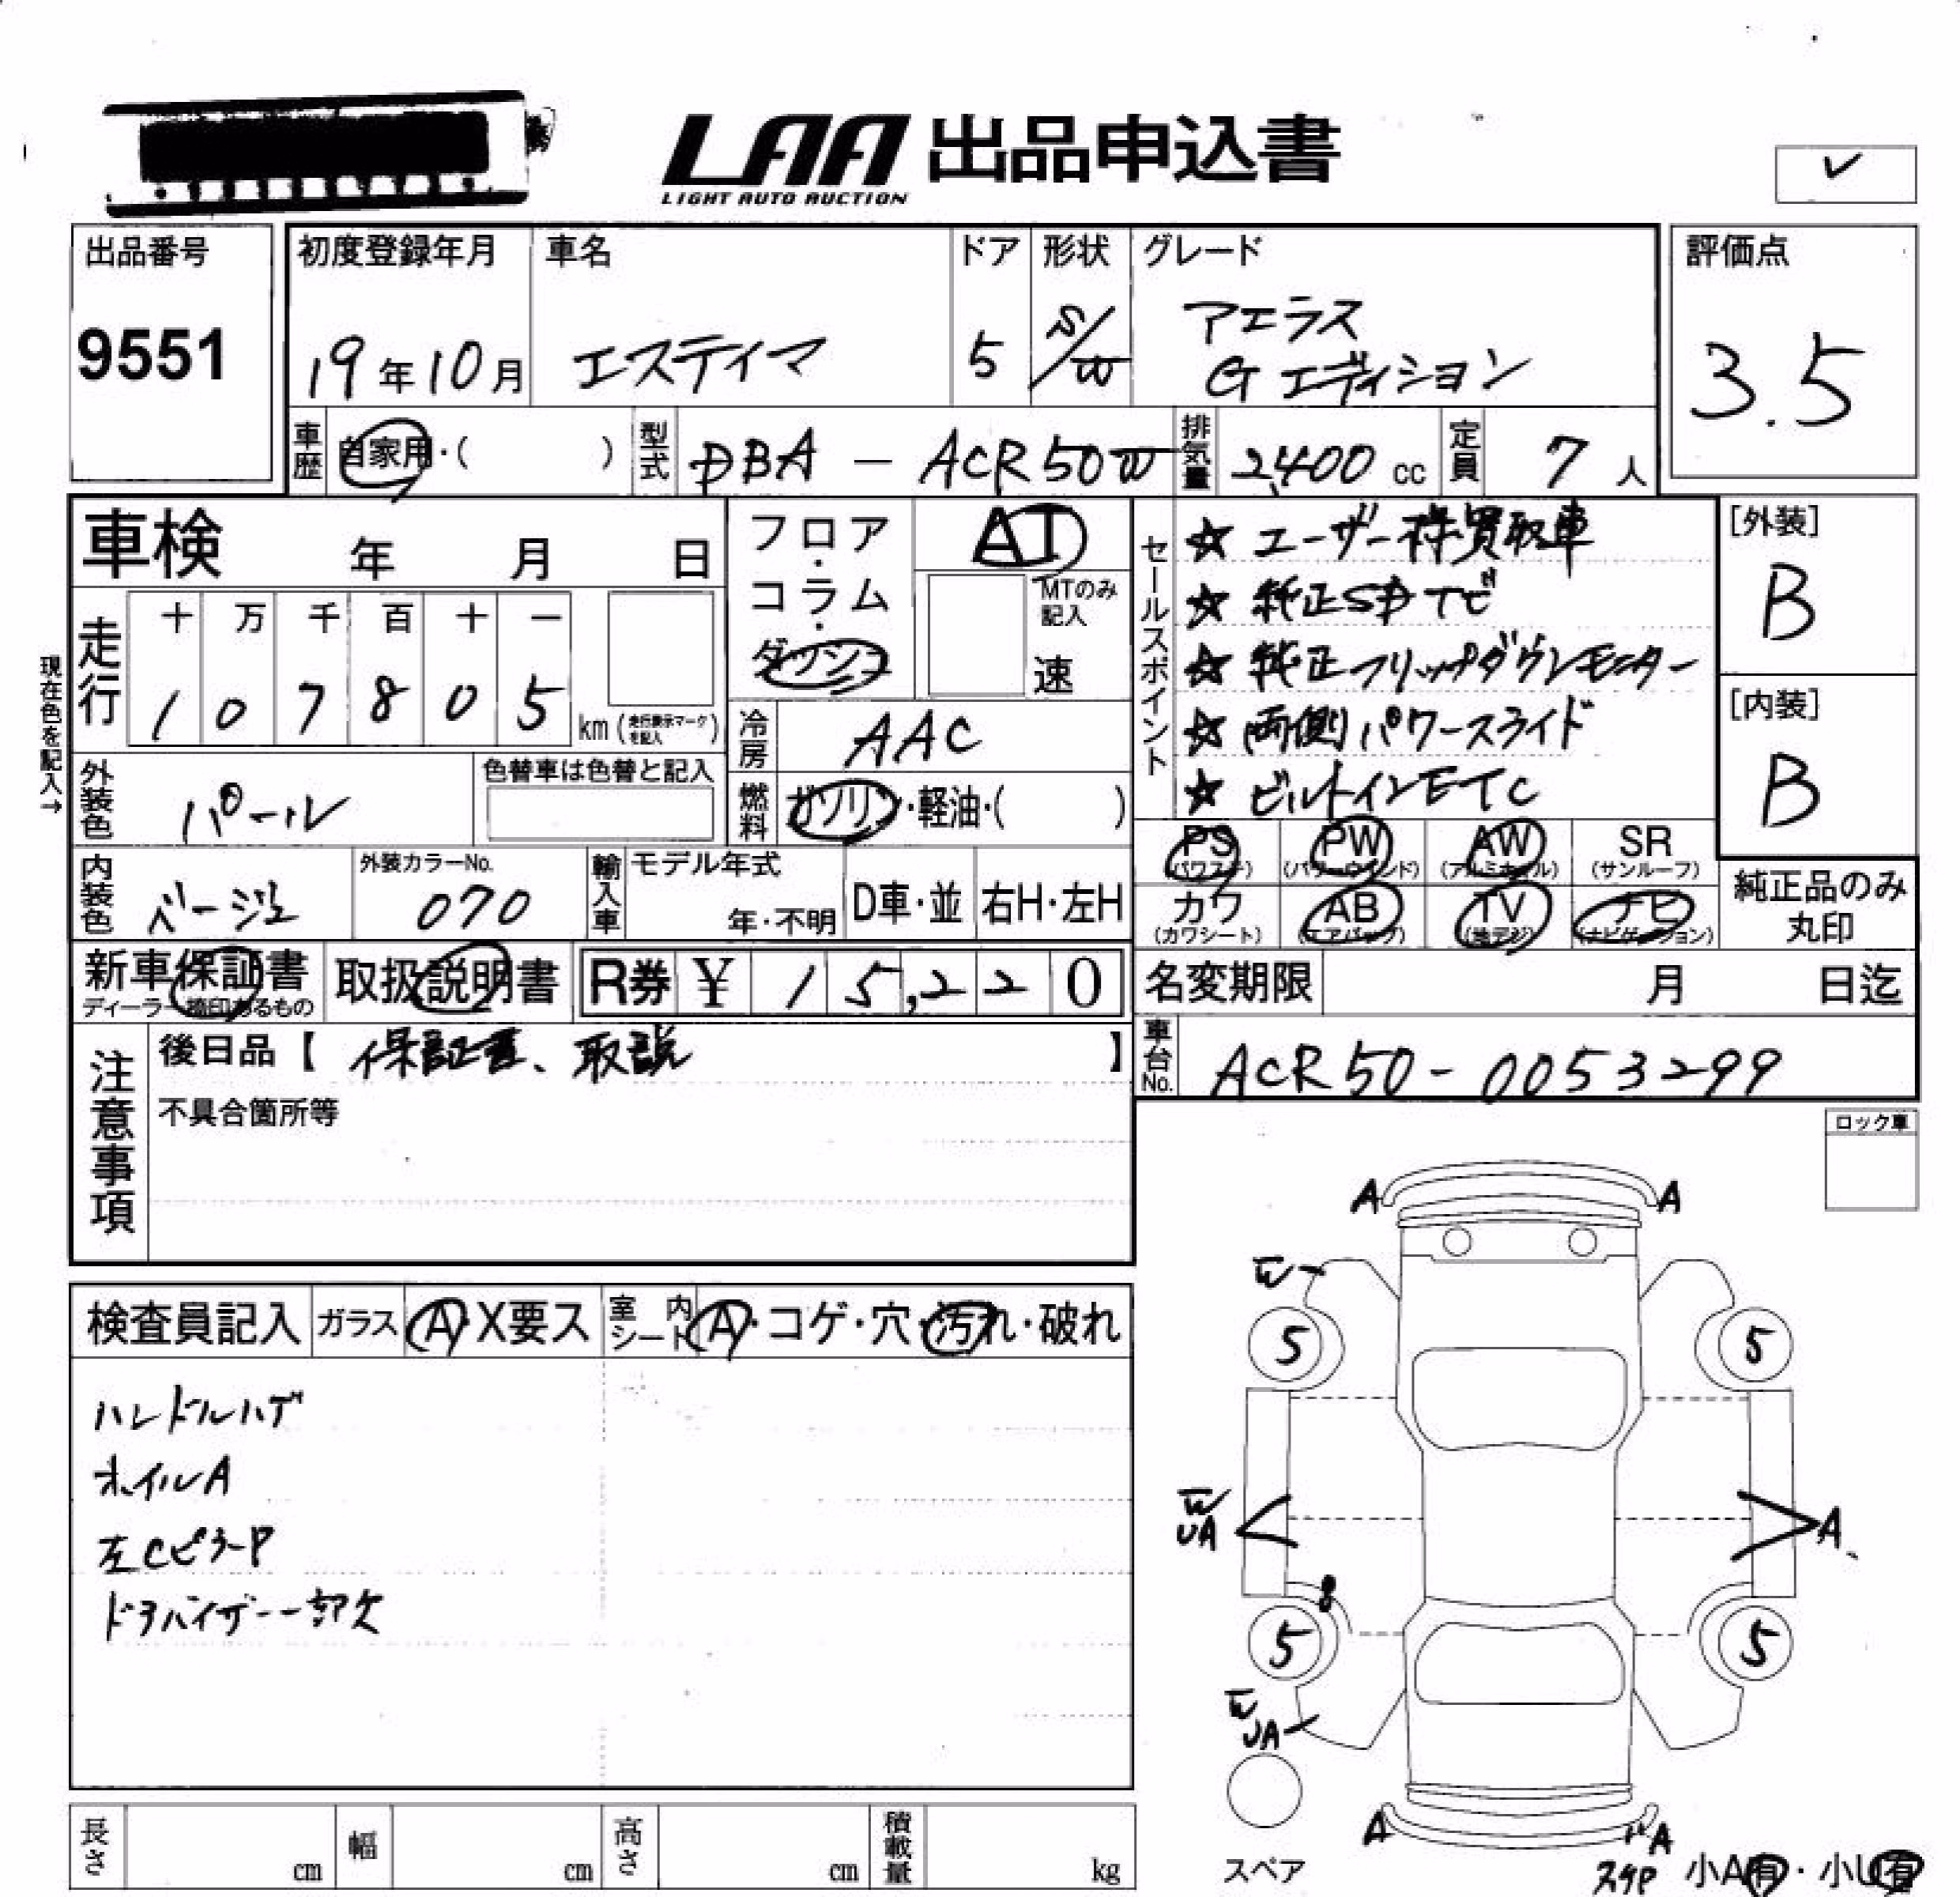 LAA 出品申込書
LIGHT AUTO AUCTION
✓
出品番号
9551
初度登録年月
19年10月
車名
エスティマ
ドア
5
形状
S/W
グレード
アエラス
Gエディション
評価点
3.5
車歴
自家用・( )
型式
DBA - ACR50W
排気量
2,400 cc
定員
7 人
車検 年 月 日
フロア・コラム・ダッシュ
AT
MTのみ記入
速
セールスポイント
☆ユーザー様買取車
☆純正SDナビ
☆純正フリップダウンモニター
☆両側パワースライド
☆ビルトインETC
[外装]
B
[内装]
B
現在色を記入→
走行
十 万 千 百 十 一
1 0 7 8 0 5
km (走行表示マークを記入)
冷房
AAC
外装色
パール
色替車は色替と記入
燃料
ガソリン・軽油・( )
PS (パワステ)
PW (パワーウインド)
AW (アルミホイル)
SR (サンルーフ)
カワ (カワシート)
AB (エアバッグ)
TV (地デジ)
ナビ (ナビゲーション)
純正品のみ丸印
内装色
ベージュ
外装カラーNo.
070
輸入車
モデル年式
年・不明
D車・並
右H・左H
新車保証書
ディーラー捺印あるもの
取扱説明書
R券 ¥ 15,220
名変期限 月 日迄
注意事項
後日品【 保証書、取説 】
不具合箇所等
車台No.
ACR50-0053299
ロック車
検査員記入
ガラス
A・X要ス
室内シート
A・コゲ・穴・汚れ・破れ
ハンドルハゲ
ホイルA
左CピラーP
ドアバイザー一部欠
A A
W
5 5
W
UA
A
5 5
W
UA
スペア
A
A
小A有・小U有
長さ cm
幅 cm
高さ cm
積載量 kg